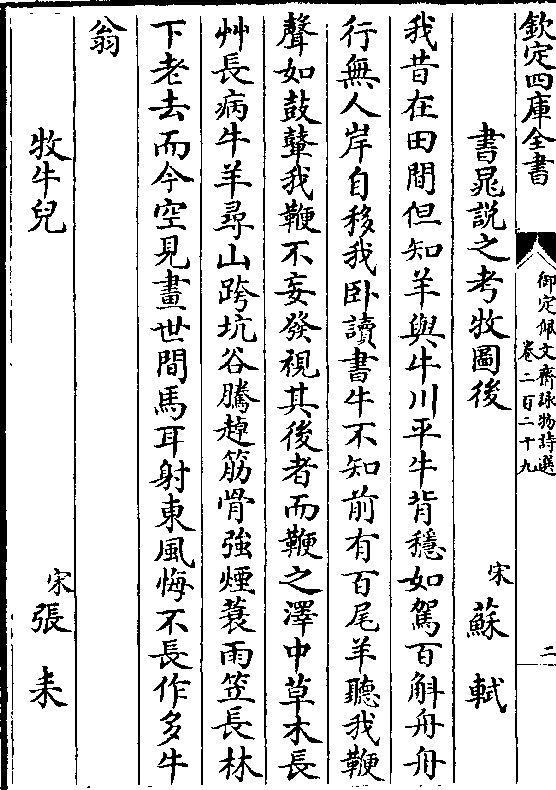 欽定四庫全書
御定佩文齋詠物詩選
卷二百二十九
二
書晁説之考牧圖後
宋
蘇軾
我昔在田間但知羊與牛川平牛背穩如駕百斛舟舟
行無人岸自移我卧讀書牛不知前有百尾羊聽我鞭
聲如鼓鼙我鞭不妄發視其後者而鞭之澤中草木長
艸長病牛羊尋山跨坑谷騰趠筋骨強煙蓑雨笠長林
下老去而今空見畫世間馬耳射東風悔不長作多牛
翁
牧牛兒
宋
張耒